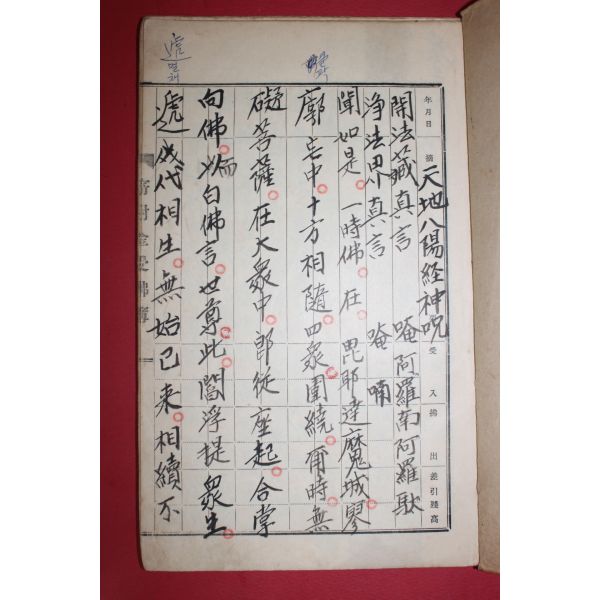 年月日 摘 受入 拂出 差引殘高
天地八陽経神呪
開法藏真言 唵阿羅南阿羅馱
淨法界真言 唵喃
聞如是一時佛在毘耶達魔城寥
廓宅中十方相隨四衆圍繞爾時無
礙菩薩在大衆中即從座起合掌
向佛而白佛言世尊此閻浮提衆生
遞代相生無始已来相續不
寄附金受拂簿
곽